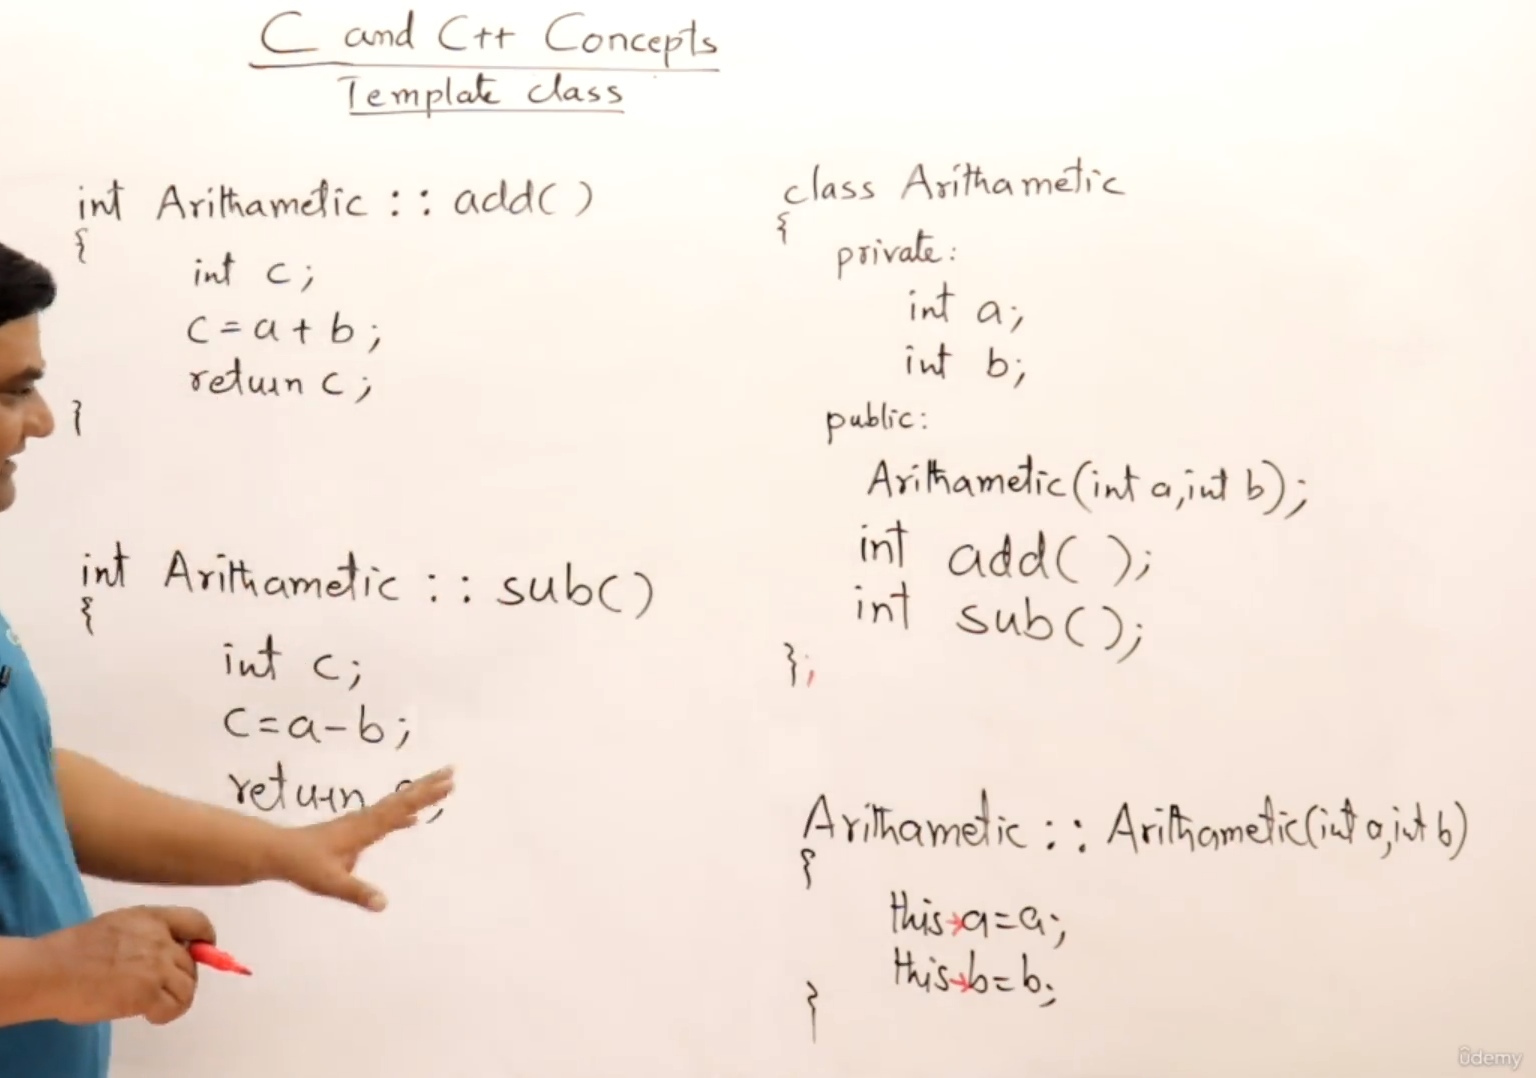 C and C++ Concepts
Template class
int Arithametic :: add()
{
int c;
c=a+b;
return c;
}
int Arithametic :: sub()
{
int c;
c=a-b;
return
class Arithametic
{
private:
int a;
int b;
public:
Arithametic(int a,int b);
int add();
int sub();
};
Arithametic :: Arithametic(int a,int b)
{
this→a=a;
this→b=b;
}
ûdemy